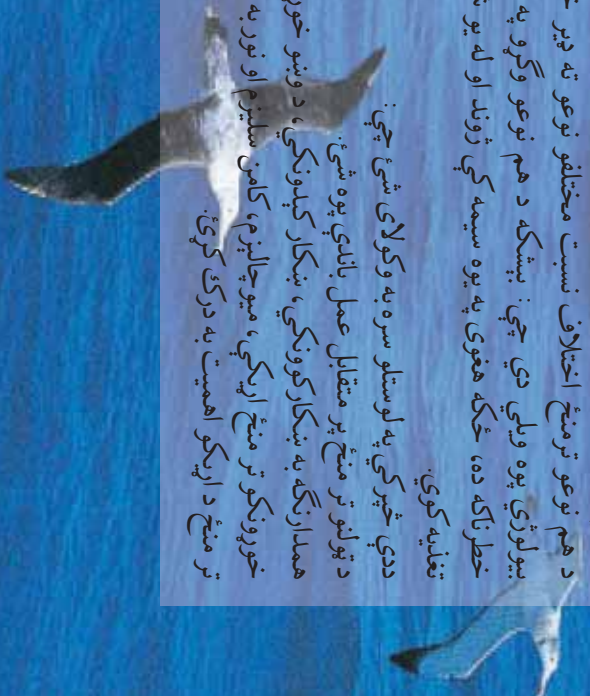 د هم نوعو ترمنځ اختلاف نسبت مختلفو نوعو ته ډېر
بيولوژي پوه ويلي دي چې: بېشکه د هم نوعو وګړو په
خطرناکه ده، ځکه هغوی په يوه سيمه کې ژوند او له يو
تغذيه کوي.
ددې څپرکي په لوستلو سره به وکولای شئ چې:
د ټولنو تر منځ پر متقابل عمل باندې پوه شئ.
همدارنګه به ښکارکوونکي، ښکار کېدونکي، د وښو
خوړونکو تر منځ اړيکې، ميوچاليزم، کامن سليزم او نور به
تر منځ د اړيکو اهميت به درک کړئ.